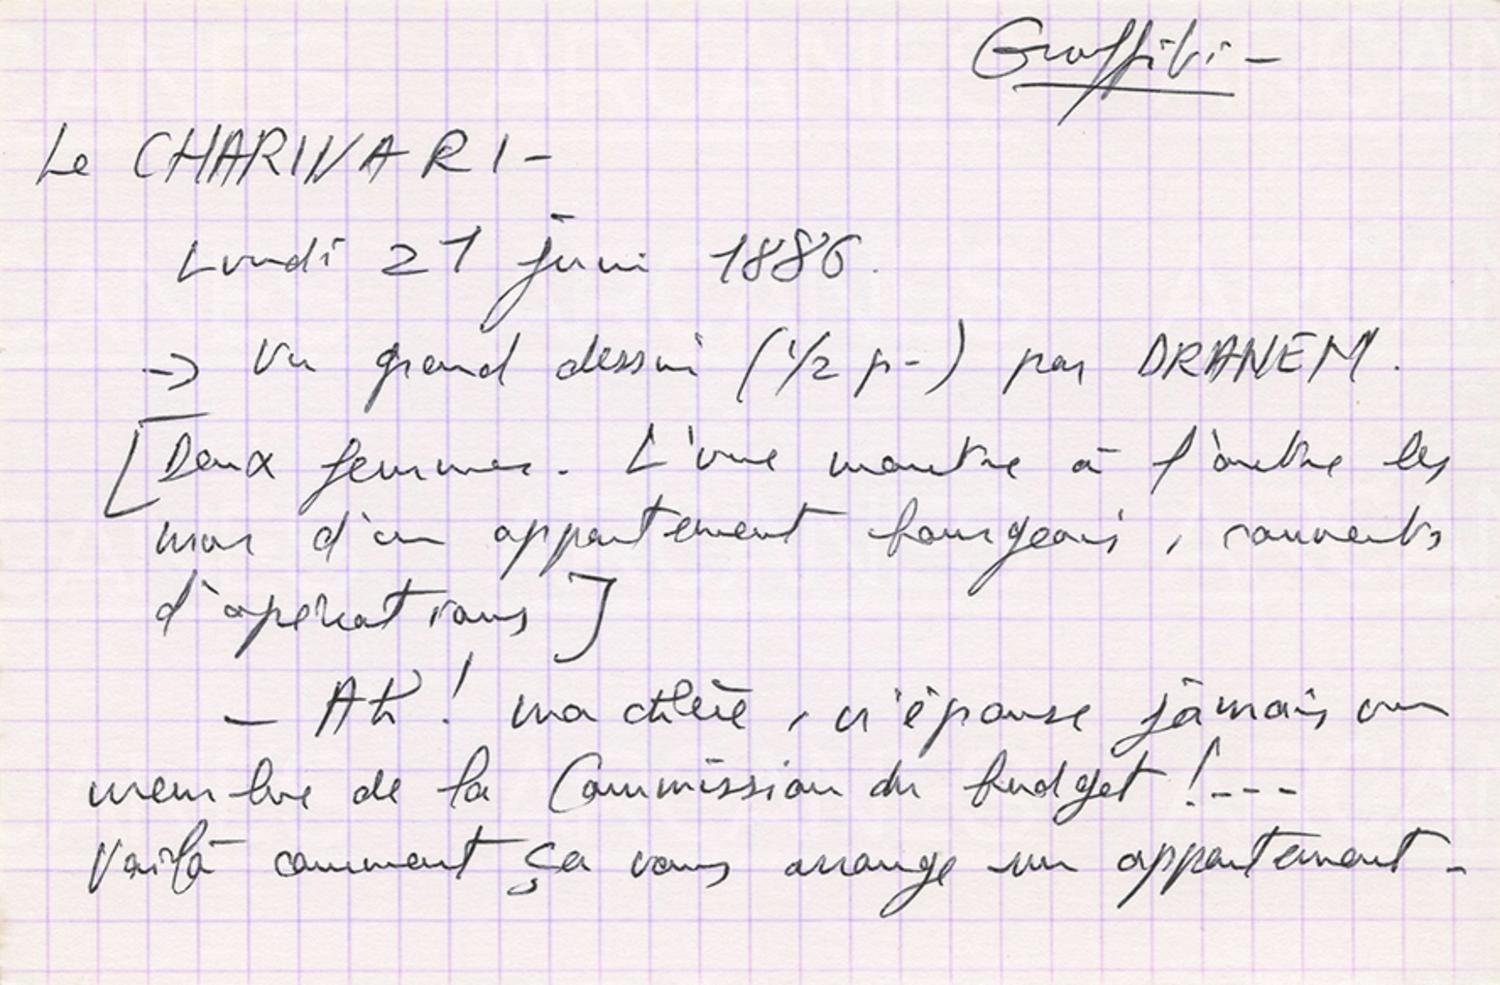 Graffiti -
Le CHARIVARI -
Lundi 21 juin 1886.
→ Un grand dessin (1/2 p-) par DRANEM.
[Deux femmes. L'une montre à l'autre les
murs d'un appartement bourgeois, couverts
d'opérations]
- Ah ! ma chère, n'épouse jamais un
membre de la Commission du budget !---
Voilà comment ça vous arrange un appartement -